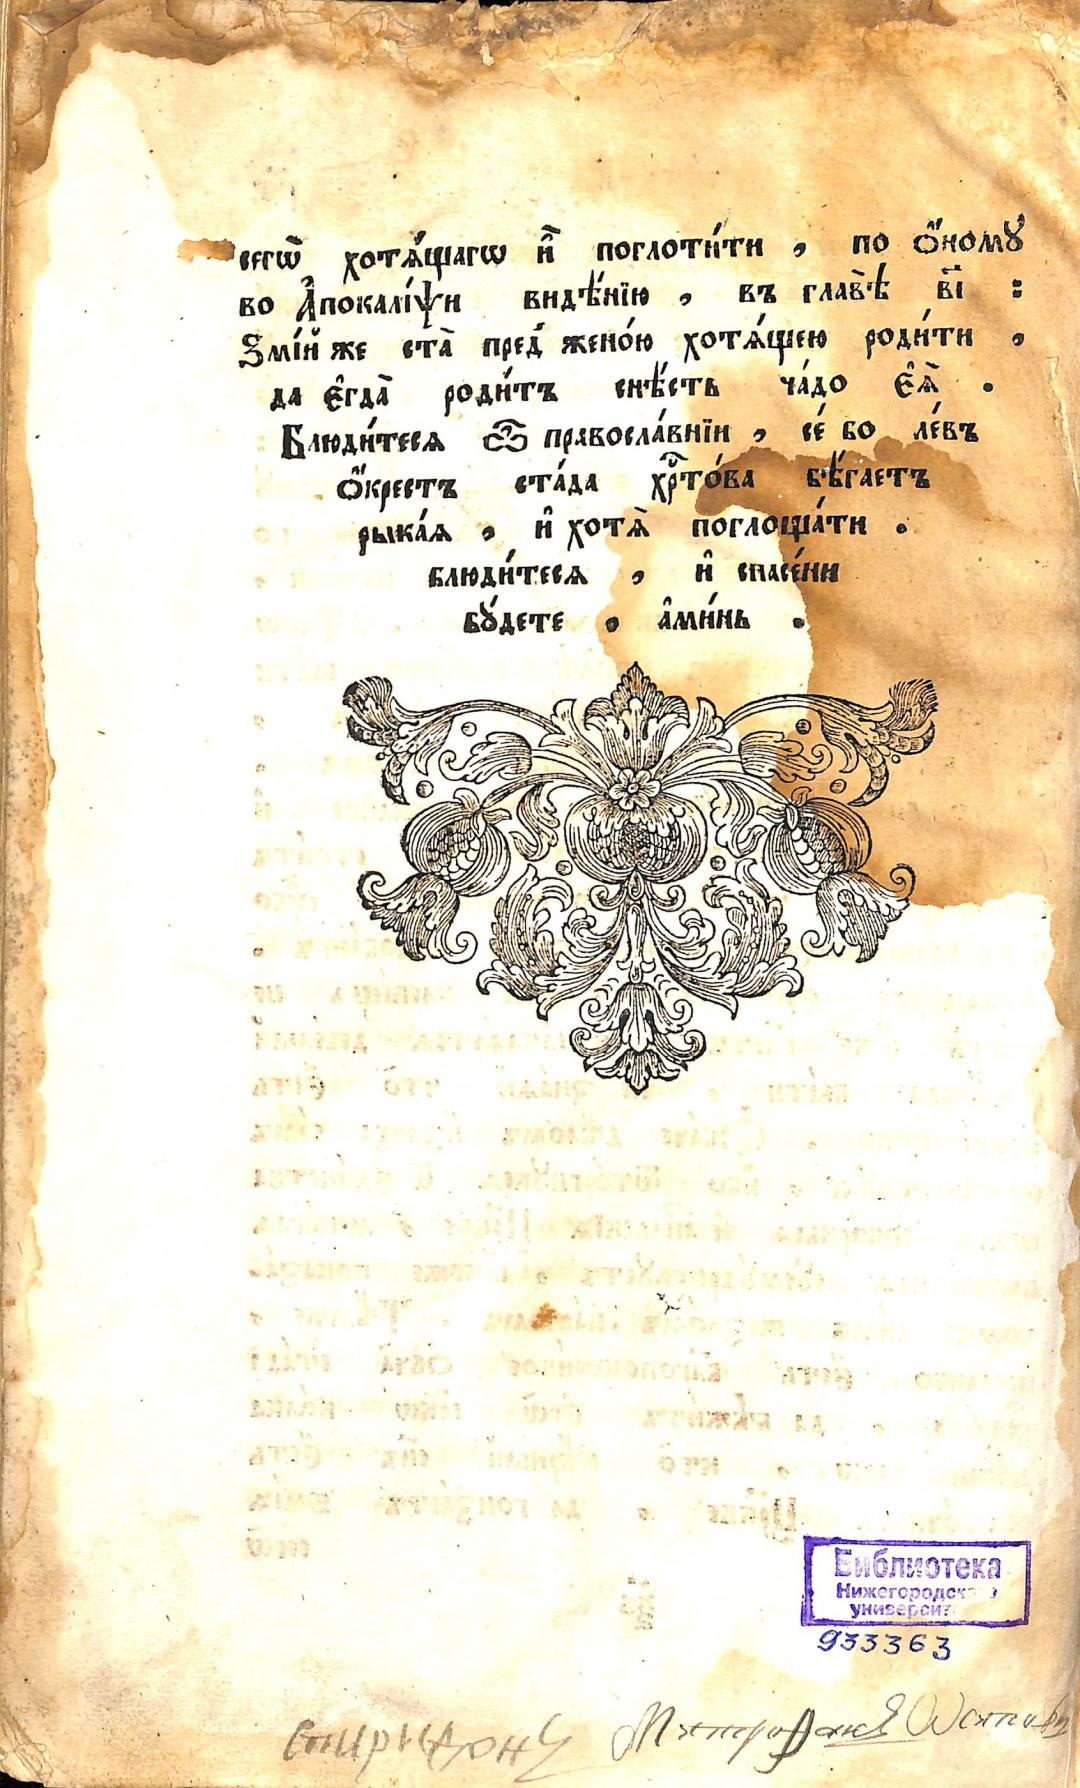 сегѡ̀ хотѧ́щагѡ и҆̀ поглоти́ти , по ѻ҆́номꙋ
во А҆покалі́ѱи видѣ́нїю , въ главѣ̀ в҃і :
Ѕмі́й же ста̀ пред̾ жено́ю хотѧ́щею роди́ти ,
да є҆гда̀ роди́тъ снѣ́сть ча́до є҆ѧ̀ .
Блюди́тесѧ ѽ правосла́внїи , се́ бо ле́въ
ѻ҆́крестъ ста́да хр҇то́ва бѣ́гаетъ
рыка́ѧ , и҆ хотѧ̀ поглоща́ти .
блюди́тесѧ , и҆ спасе́ни
бꙋ́дете , а҆ми́нь .
Библиотека
Нижегородск
универси
933363
спиридону